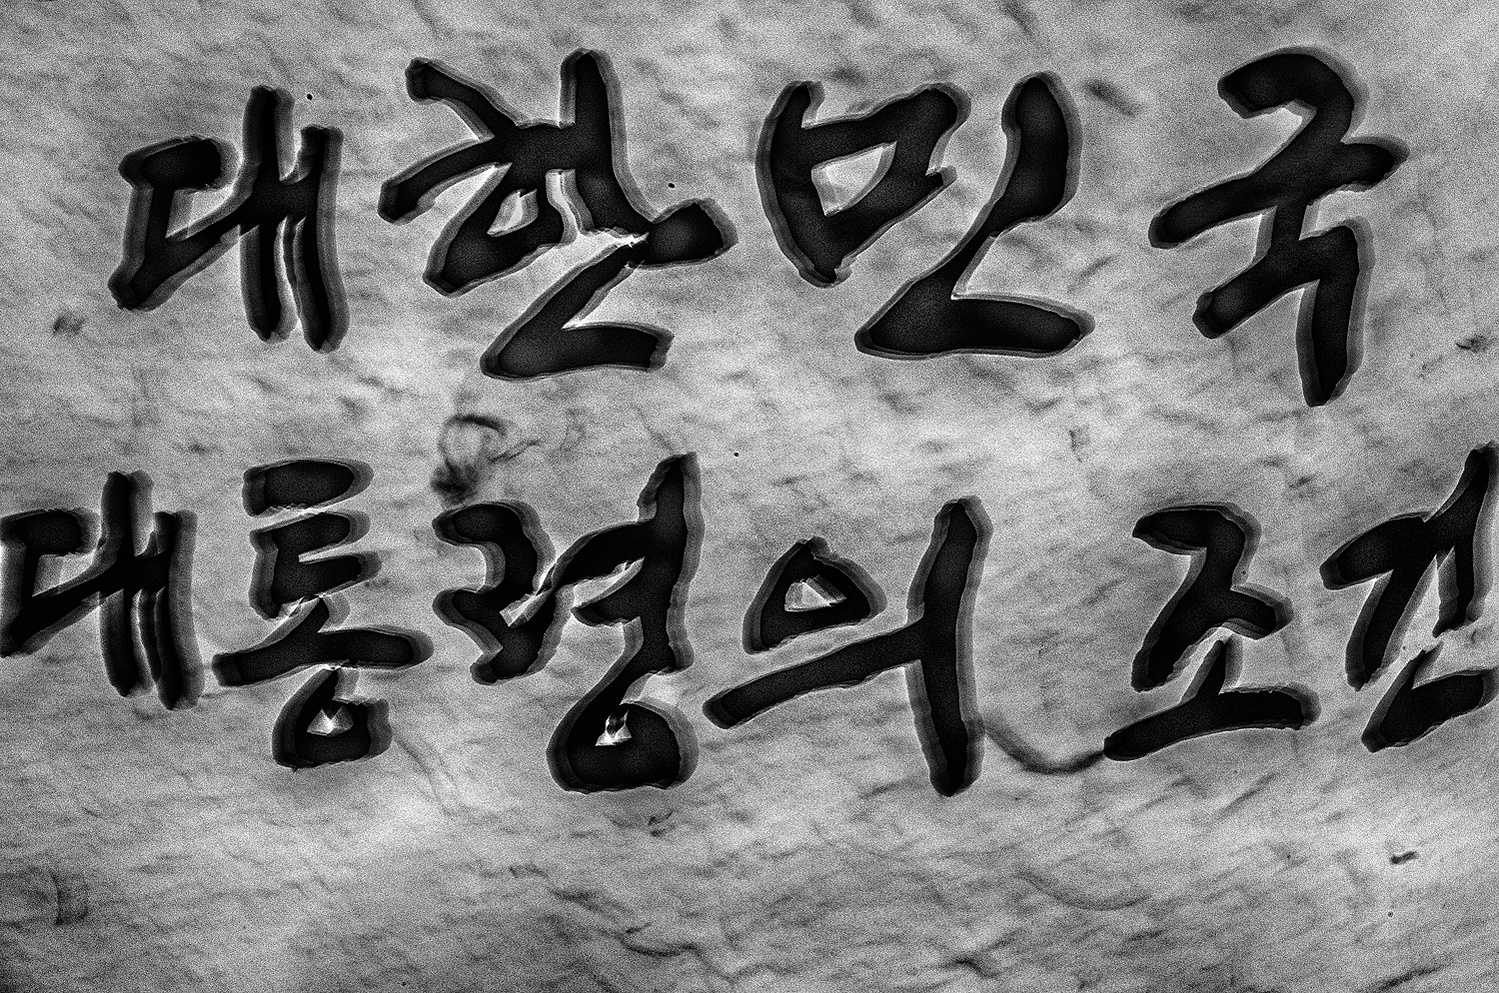 대한민국
대통령의 조건